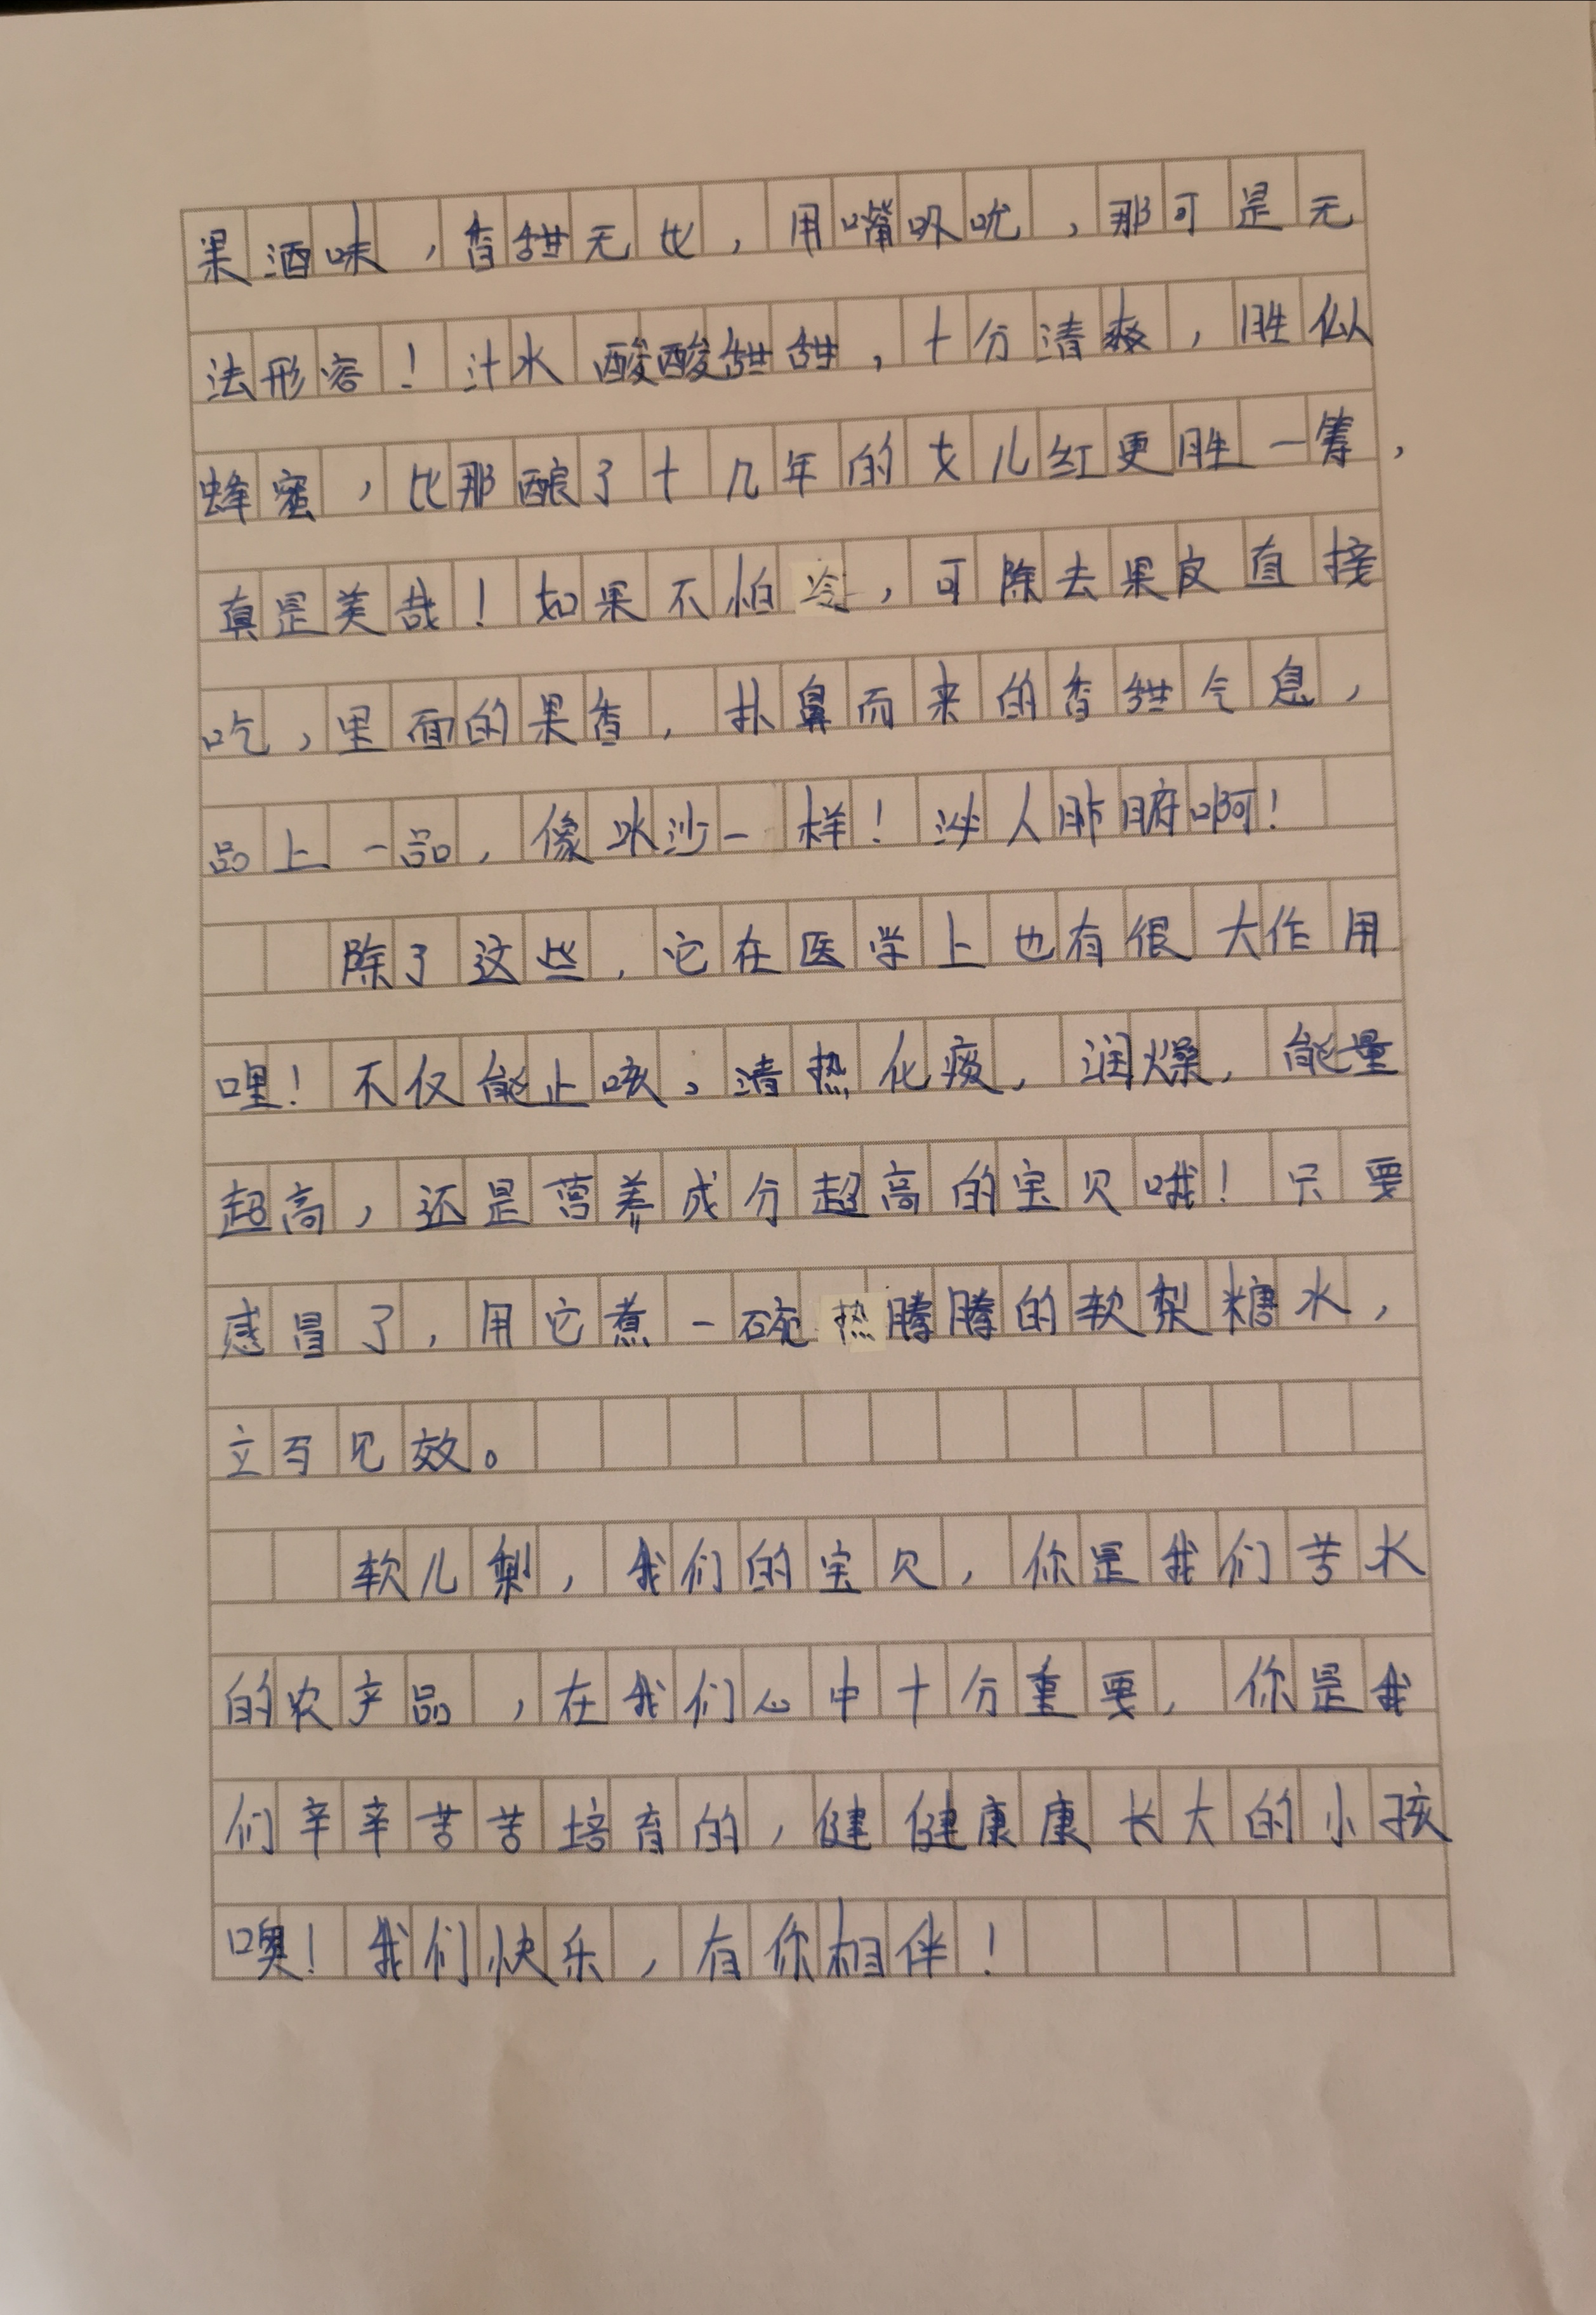 果酒味，香甜无比，用嘴吸吮，那可是无
法形容！汁水酸酸甜甜，十分清爽，胜似
蜂蜜，比那酿了十几年的女儿红更胜一筹，
真是美哉！如果不怕冷，可除去果皮直接
吃，里面的果香，扑鼻而来的香甜气息，
品上一品，像冰沙一样！沁人肺腑啊！
除了这些，它在医学上也有很大作用
哩！不仅能止咳。清热化痰，润燥，能量
超高，还是营养成分超高的宝贝哦！只要
感冒了，用它煮一碗热腾腾的软梨糖水，
立马见效。
软儿梨，我们的宝贝，你是我们苦水
的农产品，在我们心中十分重要，你是我
们辛辛苦苦培育的，健健康康长大的小孩
噢！我们快乐，有你相伴！